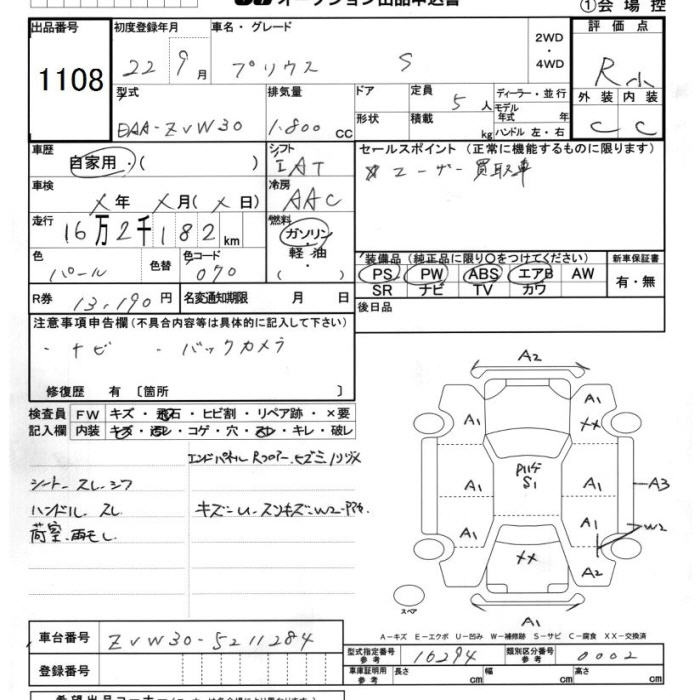 オークション出品申込書
①会場控
出品番号 1108
初度登録年月 22 9月
車名・グレード プリウス S
2WD・4WD
評価点 R小
外装 C 内装 C
型式 DAA-ZVW30
排気量 1.800 CC
ドア 形状
定員 5人
積載 kg
ディーラー・並行
モデル年式 年
ハンドル 左・右
車歴 自家用・( )
シフト IAT
セールスポイント(正常に機能するものに限ります)
ユーザー買取車
車検 ×年 ×月(×日)
冷房 AAC
走行 16万2千182km
燃料 ガソリン・軽油・( )
色 パール 色替
色コード 070
装備品(純正品に限り○をつけてください)
PS PW ABS エアB AW
SR ナビ TV カワ
新車保証書 有・無
R券 13,190円
名変通知期限 月 日
後日品
注意事項申告欄(不具合内容等は具体的に記入して下さい)
・ナビ ・バックカメラ
修復歴 有〔箇所 〕
検査員記入欄
FW キズ・飛石・ヒビ割・リペア跡・×要
内装 キズ・汚レ・コゲ・穴・スレ・キレ・破レ
エンドパネル Rフロアー
シート スレ・シワ
ハンドル スレ
キズ=U
荷室 雨モレ
A2
A1 XX
A1 A1 A3
S1
A1 A1 W2
XX
A1 A2
スペア
A-キズ E-エクボ U-凹み W-補修跡 S-サビ C-腐食 XX-交換済
車台番号 ZVW30-5211284
型式指定番号 参考 16294
類別区分番号 参考 0002
登録番号
車庫証明用 参考 長さ 幅 高さ